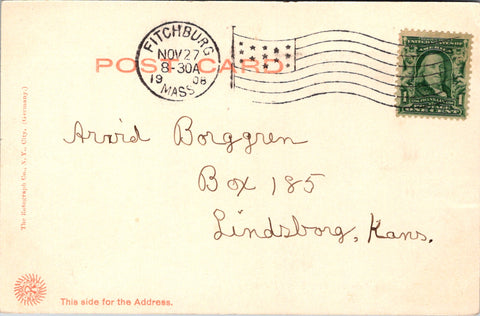 FITCHBURG
NOV 27
8-30A
1908
MASS.
POST CARD
Arvid Borggren
Box 185
Lindsborg, Kans.
The Rotograph Co., N. Y. City. (Germany.)
This side for the Address.